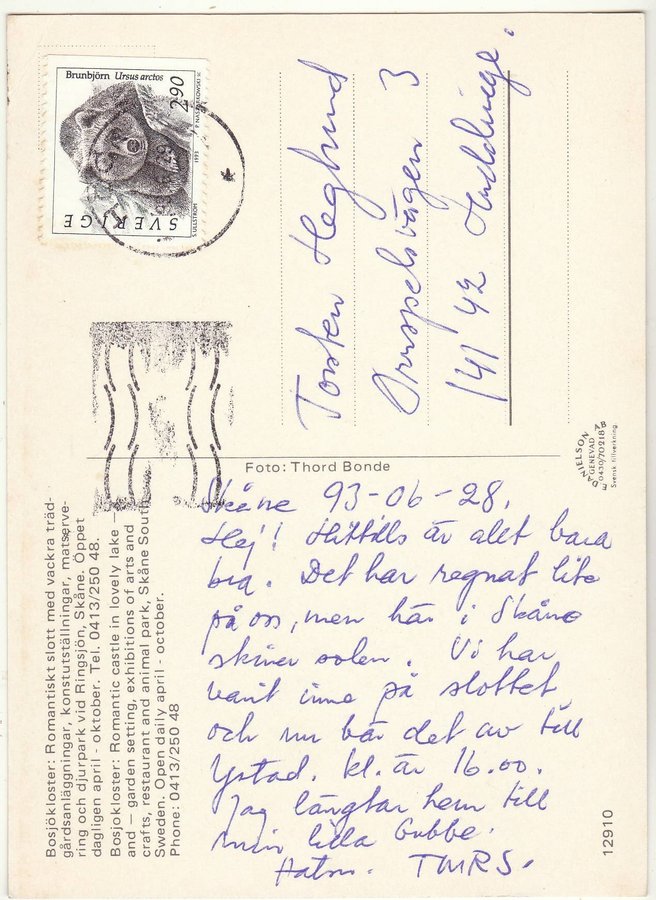 Brunbjörn Ursus arctos
2.90
1993
SVERIGE
S ULLSTRÖM
Torsten Heglund
3
141 42 Huddinge.
Foto: Thord Bonde
DANIELSON
GENEVAD
0430/70218
Svensk tillverkning.
Skåne 93-06-28.
Hej! Hittills är allt bara
bra. Det har regnat lite
på oss, men här i Skåne
skiner solen. Vi har
varit inne på slottet
och nu bär det av till
Ystad. kl. är 16.00.
Jag längtar hem till
min lilla Gubbe.
Bosjökloster: Romantiskt slott med vackra träd-
gårdsanläggningar, konstutställningar, matserve-
ring och djurpark vid Ringsjön, Skåne. Öppet
dagligen april - oktober. Tel. 0413/250 48.
Bosjokloster: Romantic castle in lovely lake –
and – garden setting, exhibitions of arts and
crafts, restaurant and animal park, Skåne South
Sweden. Open daily april - october.
Phone: 0413/250 48
12910